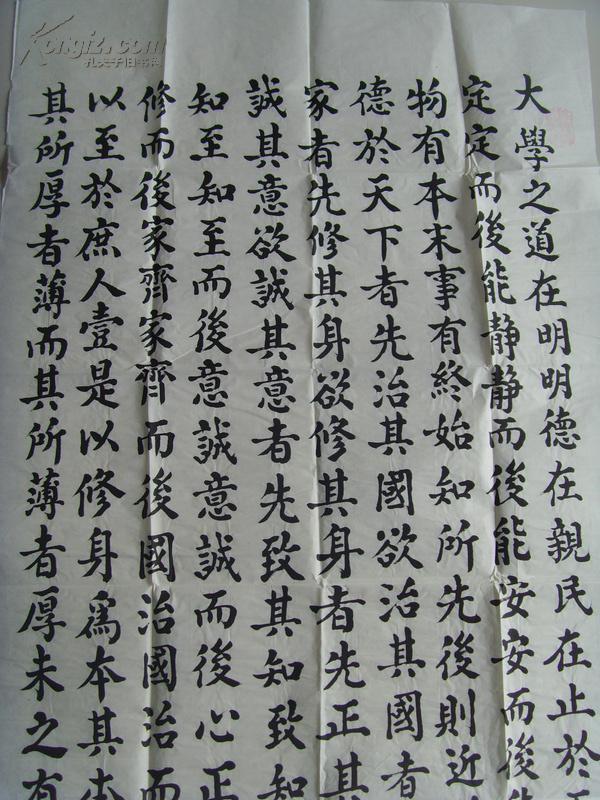 大學之道在明明德在親民在止於
定定而後能静静而後能安安而後
物有本末事有終始知所先後則近
德於天下者先治其國欲治其國者
家者先修其身欲修其身者先正其
誠其意欲誠其意者先致其知致知
知至知至而後意誠意誠而後心正
修而後家齊家齊而後國治國治而
以至於庶人壹是以修身爲本其本
其所厚者薄而其所薄者厚未之有
Kongfz.com
孔夫子旧书网